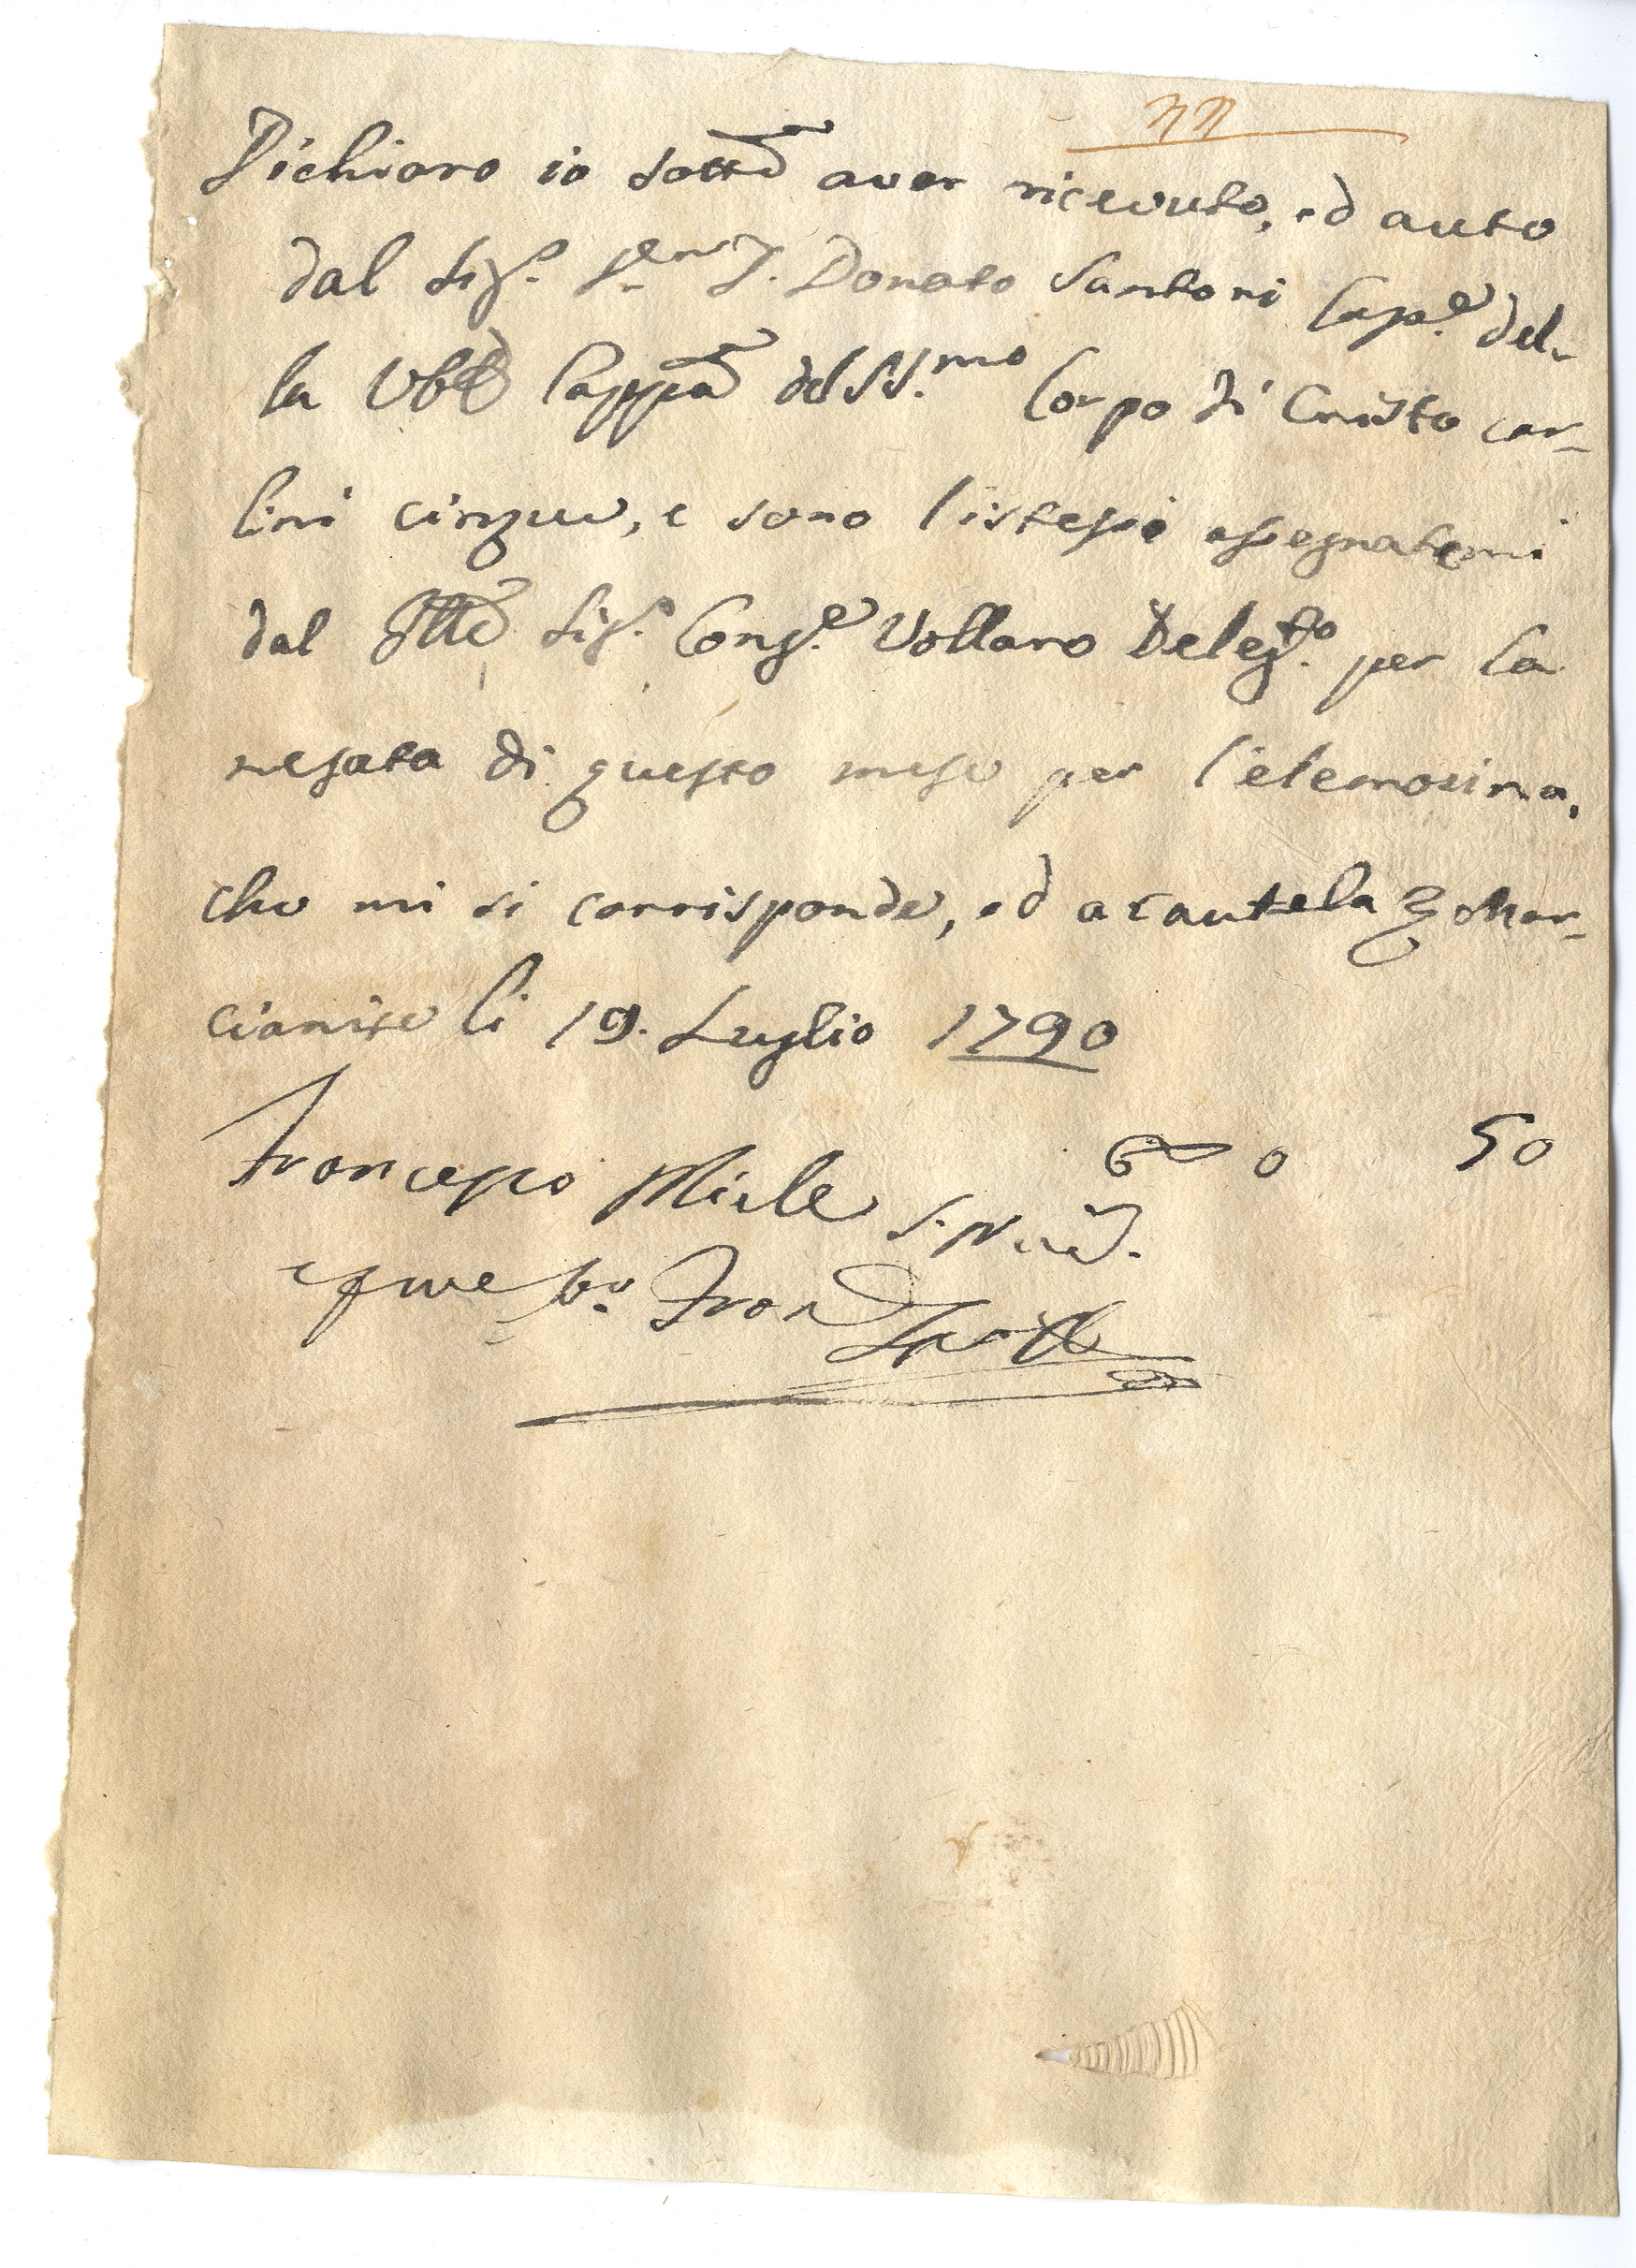 77
Dichiaro io sott̃o aver ricevuto, ed auto
dal Sig.r D. Donato Santori Cap.e del-
la Cappa del SS.mo Corpo di Cristo car-
lini cinque, e sono l'istessi assegnatemi
dal Ill̃e Sig.r Cons.e Vollaro Deleg.to per la
mesata di questo mese per l'elemosina,
che mi si corrisponde, ed a cautela Mar-
cianise li 19. Luglio 1790
Francesco Miele 0 50